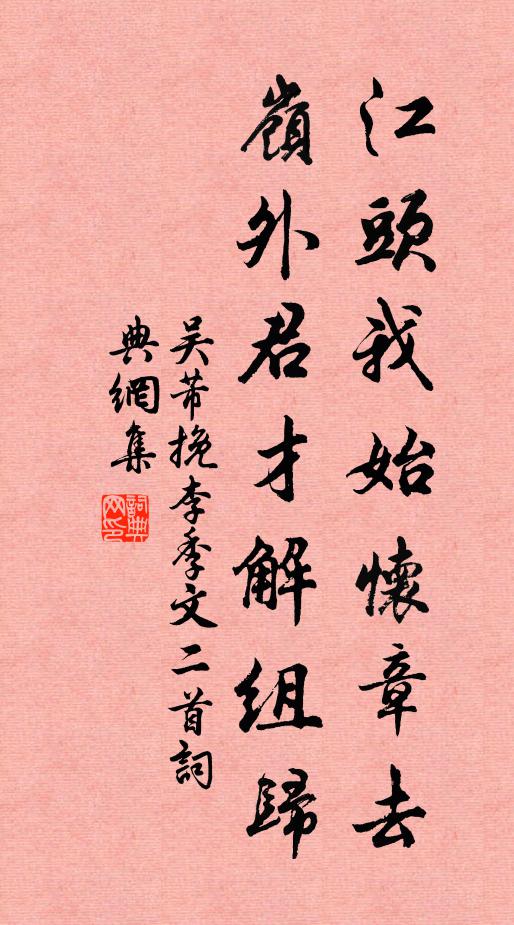 江頭我始懷章去
嶺外君才解組歸
吴芾挽李季文二首詞
典網集
詞典網印